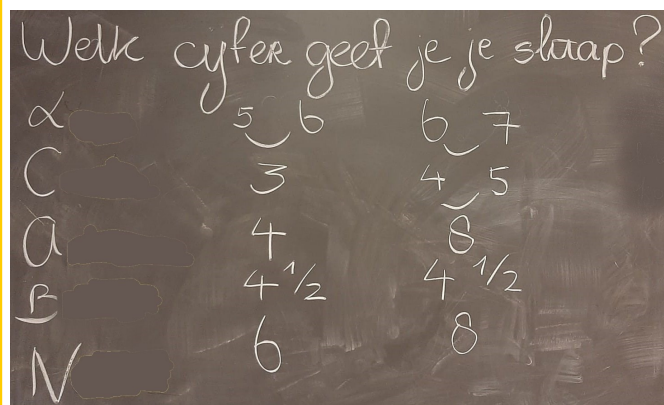 Welk cyfer geef je je slaap?
α 5‿6 6‿7
C 3 4‿5
a 4 8
B 4 1/2 4 1/2
N 6 8